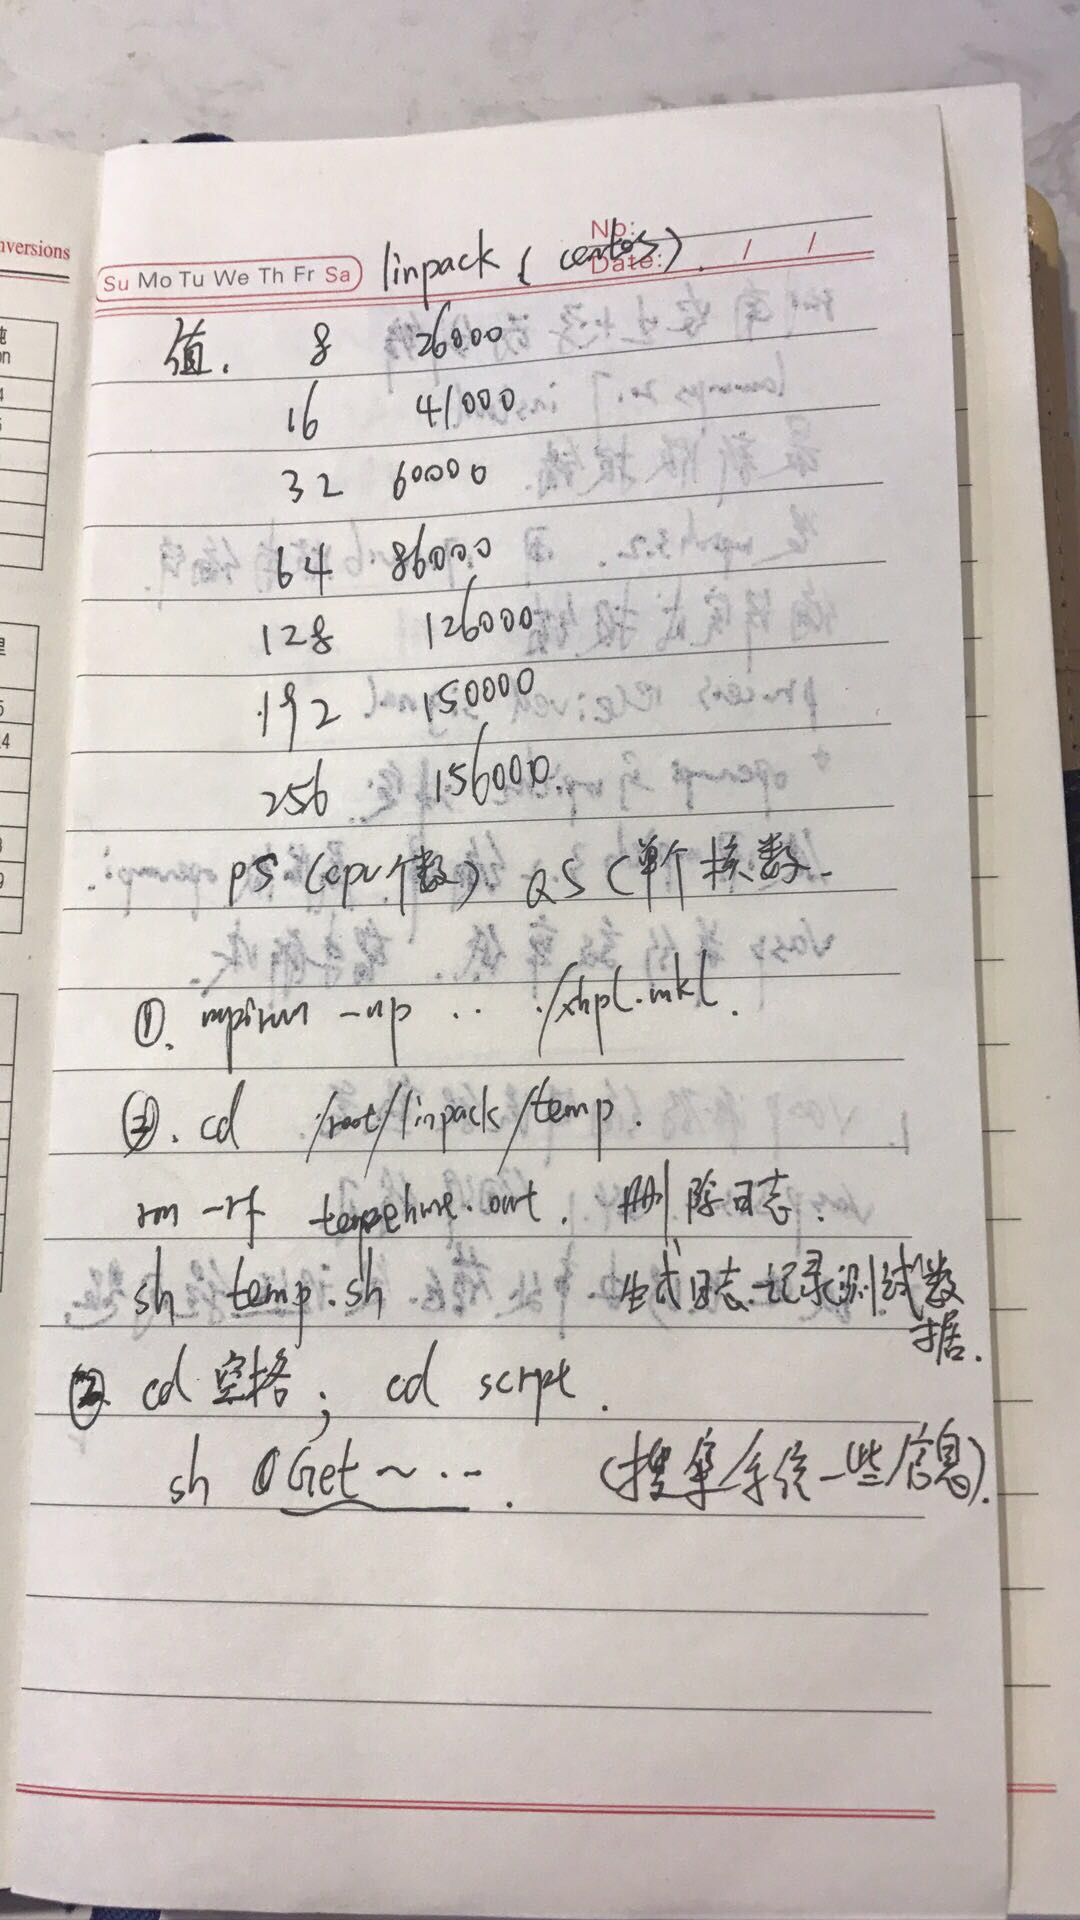 nversions
No:
Su Mo Tu We Th Fr Sa linpack (centos).
Date: / /
值. 8 26000
16 41000
32 60000
64 86000
128 126000
192 150000
256 156000.
PS (cpu个数) QS (单个核数.
①. mpirun -np .. ./xhpl.mkl.
③. cd /root/linpack/temp.
rm -rf .out. 删除日志.
sh temp.sh 生成日志记录测试数
据.
② cd 空格; cd script.
sh Get~ ... (搜集系统一些信息).